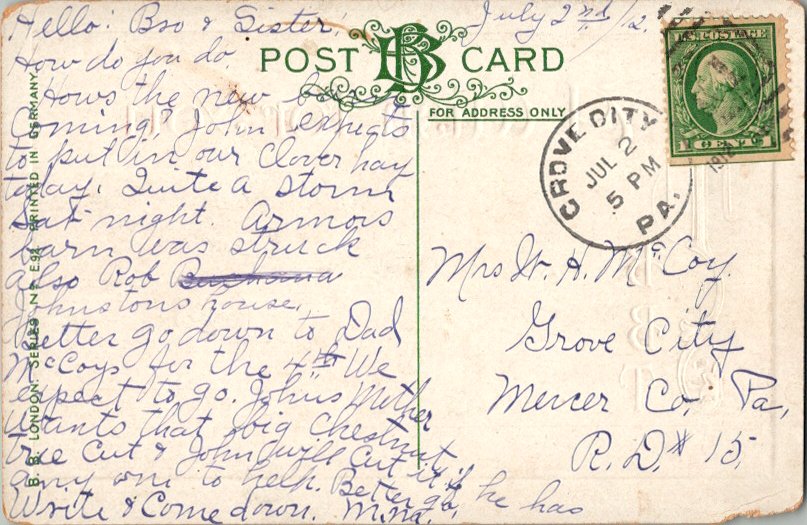 Hello: Bro & Sister, July 2nd/12.
How do you do.
POST CARD
BB
Hows the new
FOR ADDRESS ONLY
Coming. John expects
to put in our Clover hay
today. Quite a storm
Sat- night. Armors
barn was struck
also Rob
Johnstons house.
Better go down to Dad
McCoys for the 4th We
expect to go. Johns Mother
wants that big Chestnut
tree Cut & John will Cut it if he has
any one to help. Better go,
Write & Come down. M.
U.S. POSTAGE
1 CENT
GROVE CITY
JUL 2
5 PM
PA.
1912
Mrs W. H. McCoy.
Grove City
Mercer Co, Pa,
R.D. # 15.
B. B. LONDON. SERIES No E.92 PRINTED IN GERMANY.